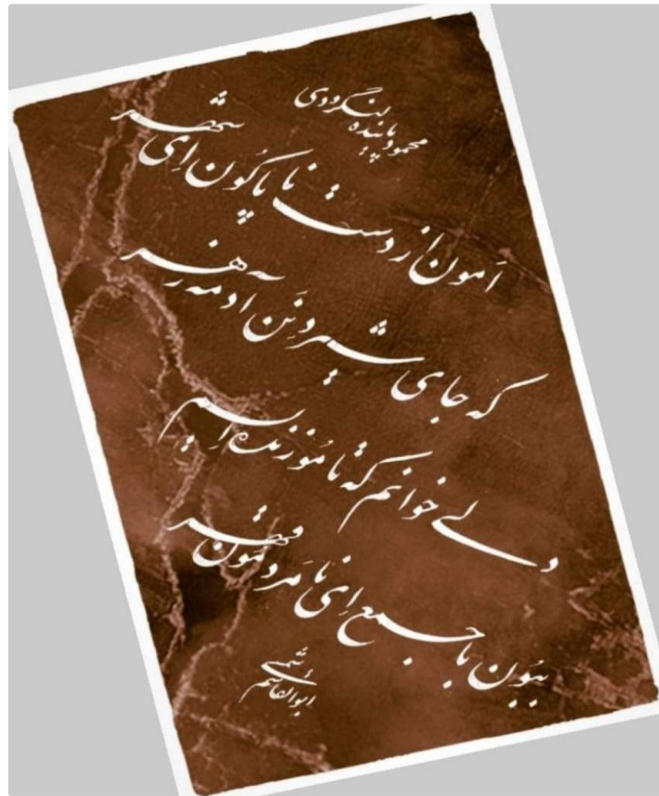 محمود پاینده لنگرودی
اَمون از دست نا پاکُون اِی شهر
که جای شیر دِنَن آدمه رَ زهر
ولی خوانم که تا مُو زنده ایسم
ببُون با جمع اِی نا مَردمُون قهر
ابوالقاسم